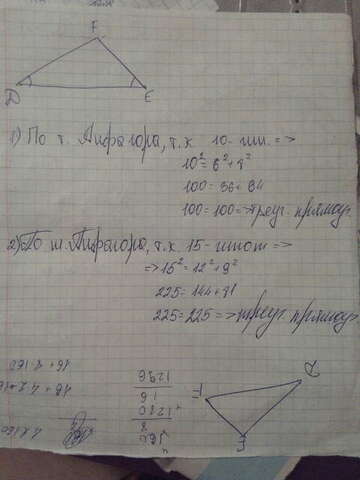 F
D E
1) По т. Пифагора, т.к 10- гип. =>
10² = 6² + 8²
100 = 36 + 64
100 = 100 => треуг. прямоуг.
2) По т. Пифагора, т.к. 15- гипот =>
=> 15² = 12² + 9²
225 = 144 + 81
225 = 225 => треуг. прямоуг.
D
F
E
1296
16
1280
8